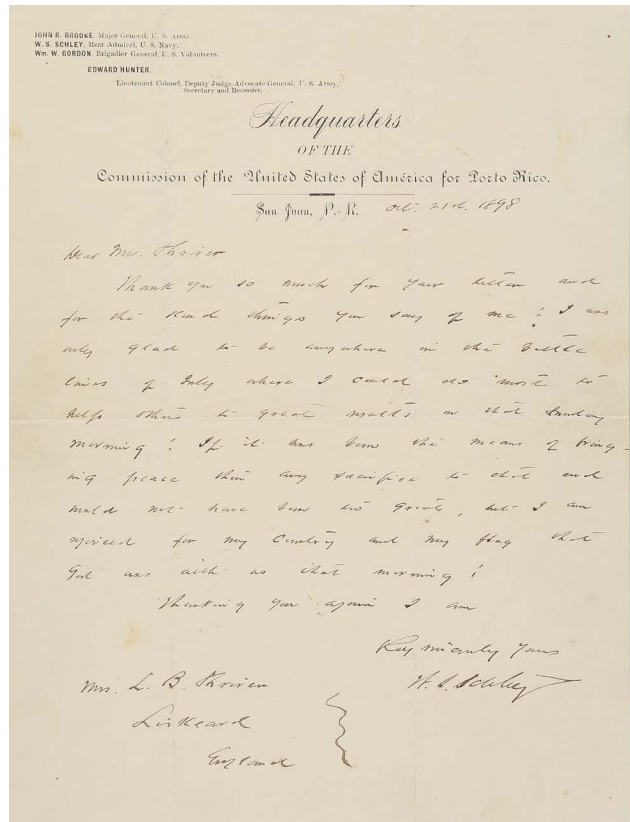 JOHN R. BROOKE, Major General, U. S. Army.
W. S. SCHLEY, Rear Admiral, U. S. Navy.
Wm. W. GORDON, Brigadier General, U. S. Volunteers.
EDWARD HUNTER,
Lieutenant Colonel, Deputy Judge-Advocate-General, U. S. Army,
Secretary and Recorder.
Headquarters
OF THE
Commission of the United States of América for Porto Rico.
San Juan, P. R. Oct. 21st. 1898
Dear Mrs.
Thank you so much for your letter and
for the kind things you say of me! I was
only glad to be anywhere in the battle
lines of July where I could do most to
help others to great results on that Sunday
morning! If it has been the means of bring-
ing peace then any sacrifice to that end
would not have been too great, but I am
rejoiced for my Country and my flag that
God was with us that morning!
Thanking you again I am
Very sincerely yours
W. S. Schley
Mrs. L. B.
Liskeard
England